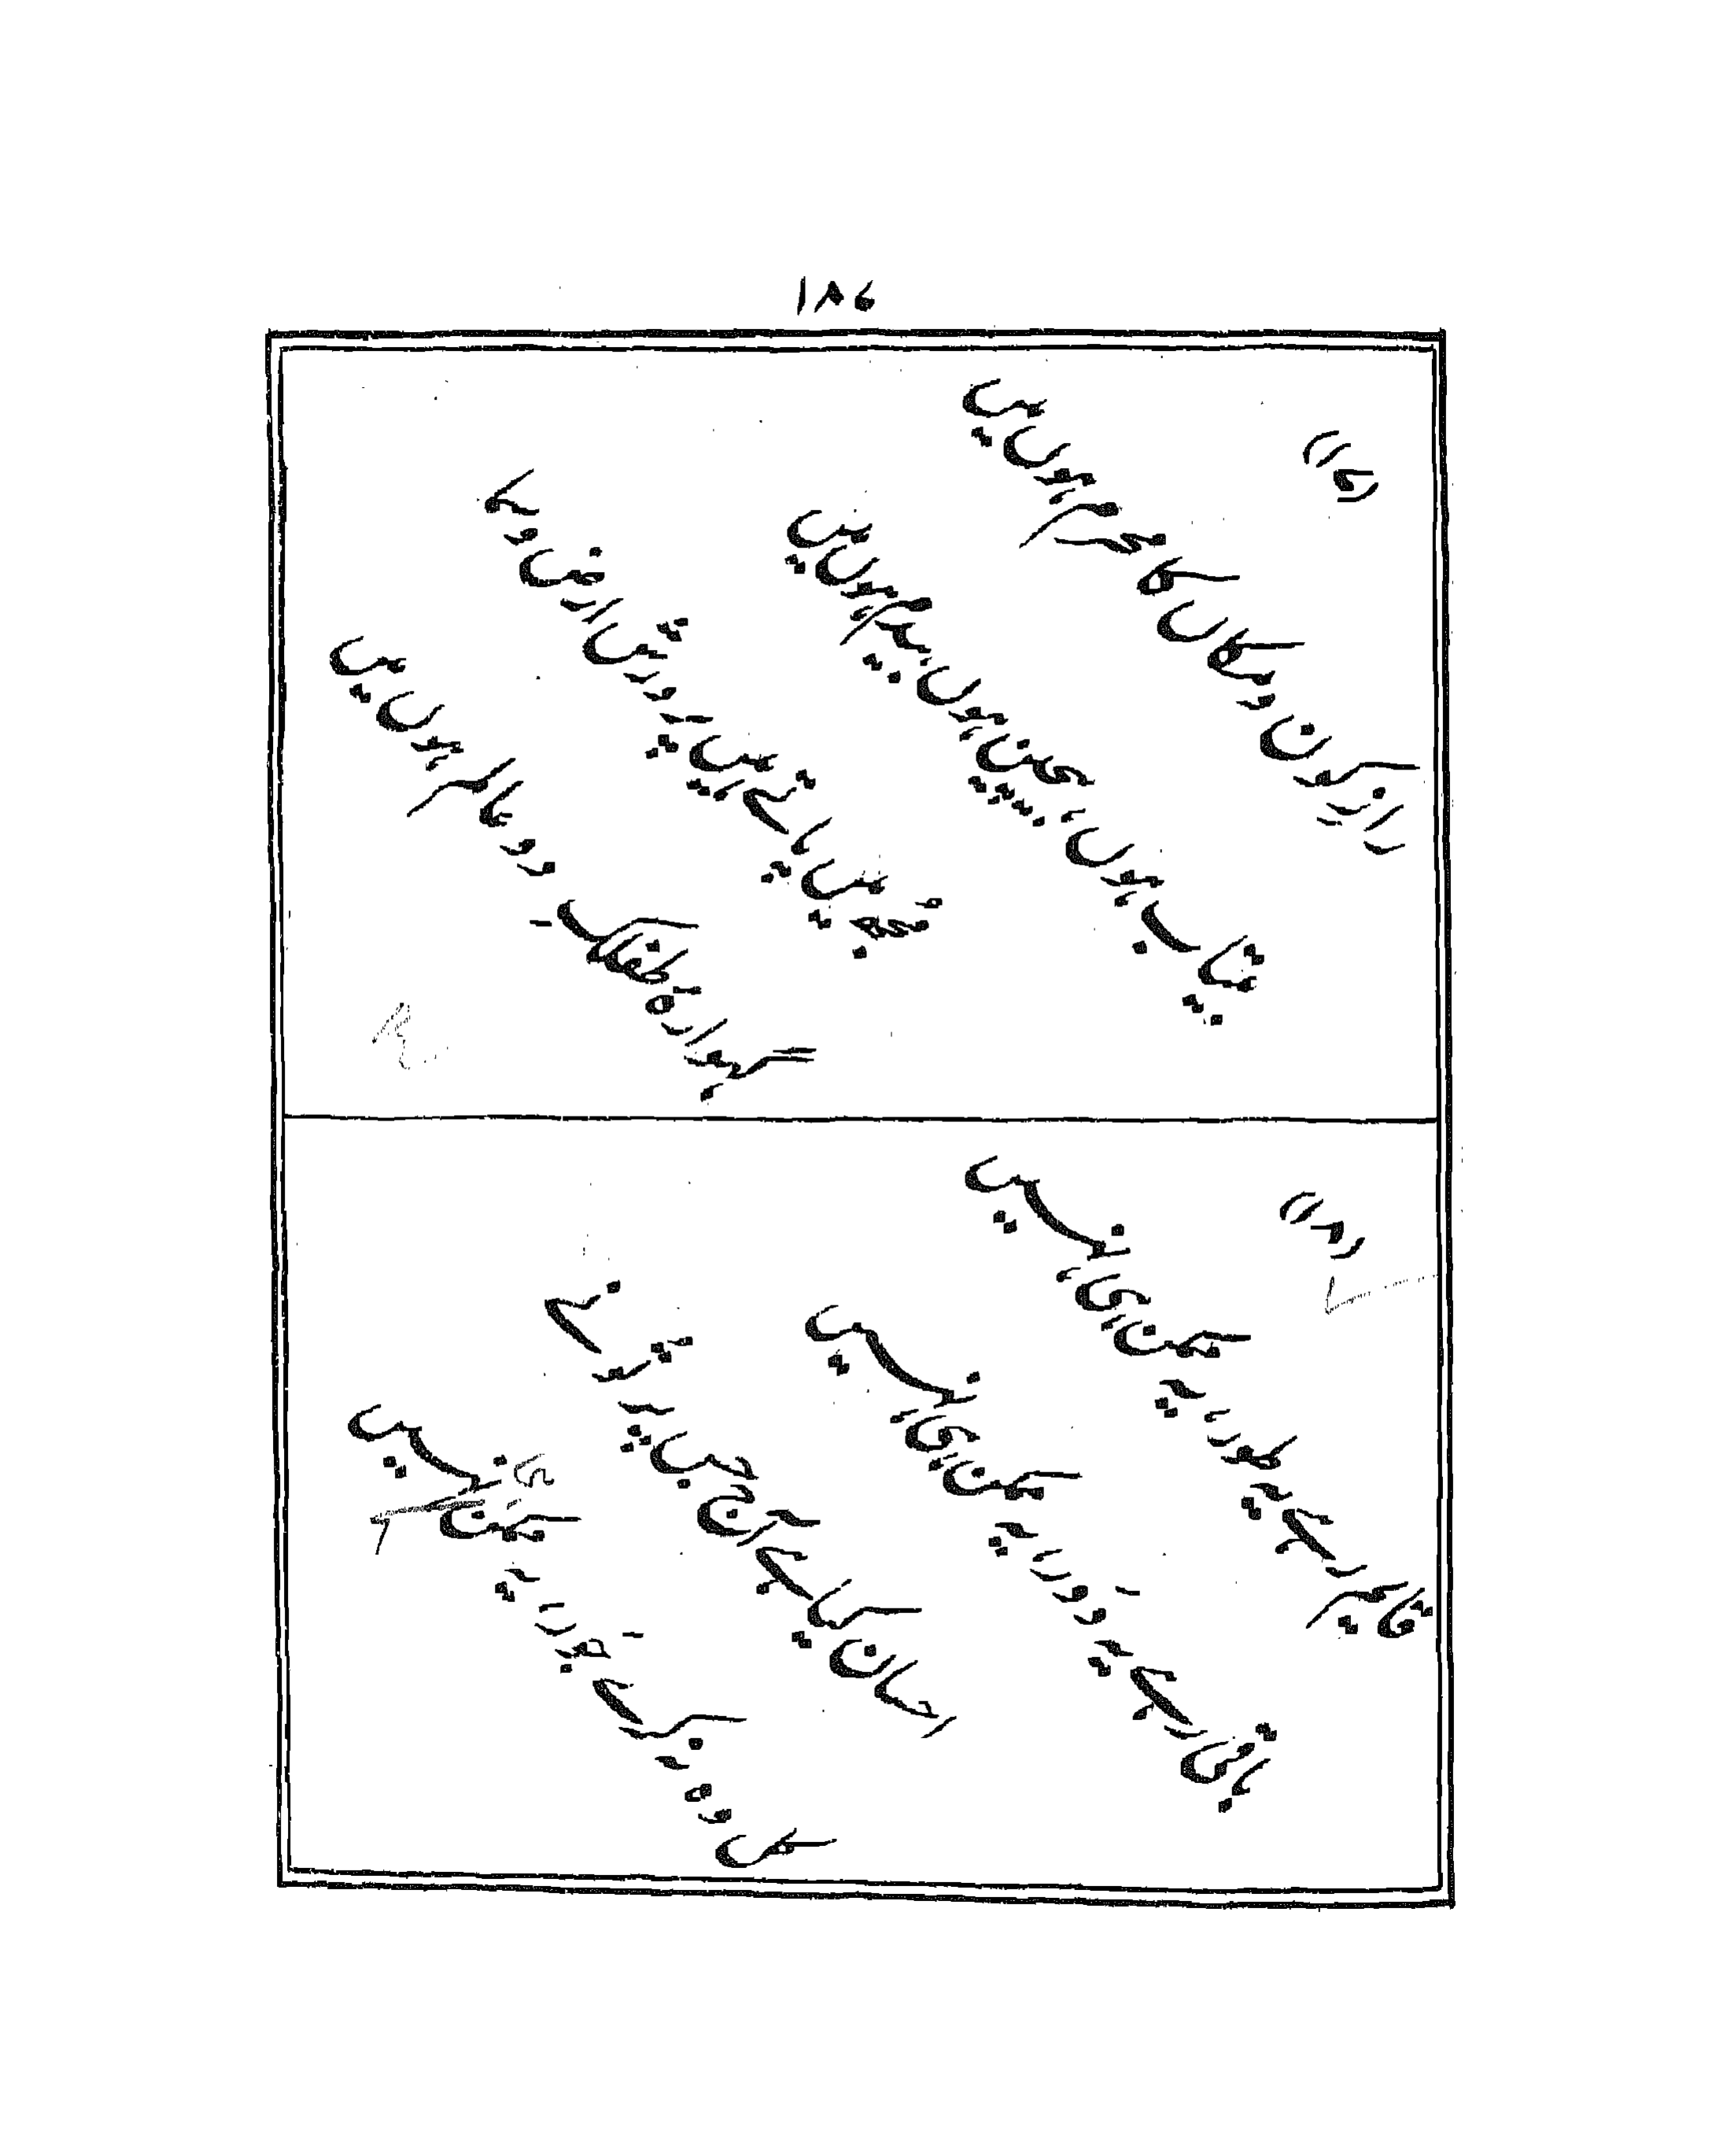 ۱۸۷
(۱۷)
رازِ کون و مکاں کا محرم ہوں میں
بیتاب ہوں، بیچین ہوں بیدم ہوں میں
مجھ میں پاتے ہیں پرورش ارض و سما
گہوارۂ طفلکِ دو عالم ہوں میں
(۱۸)
قائم رہے یہ طور، یہ ممکن ہی نہیں
باقی رہے یہ دَور، یہ ممکن ہی نہیں
احسان کیا ہے آج جس پر تو نے
کل وہ نہ کرے جَور، یہ ممکن ہی نہیں